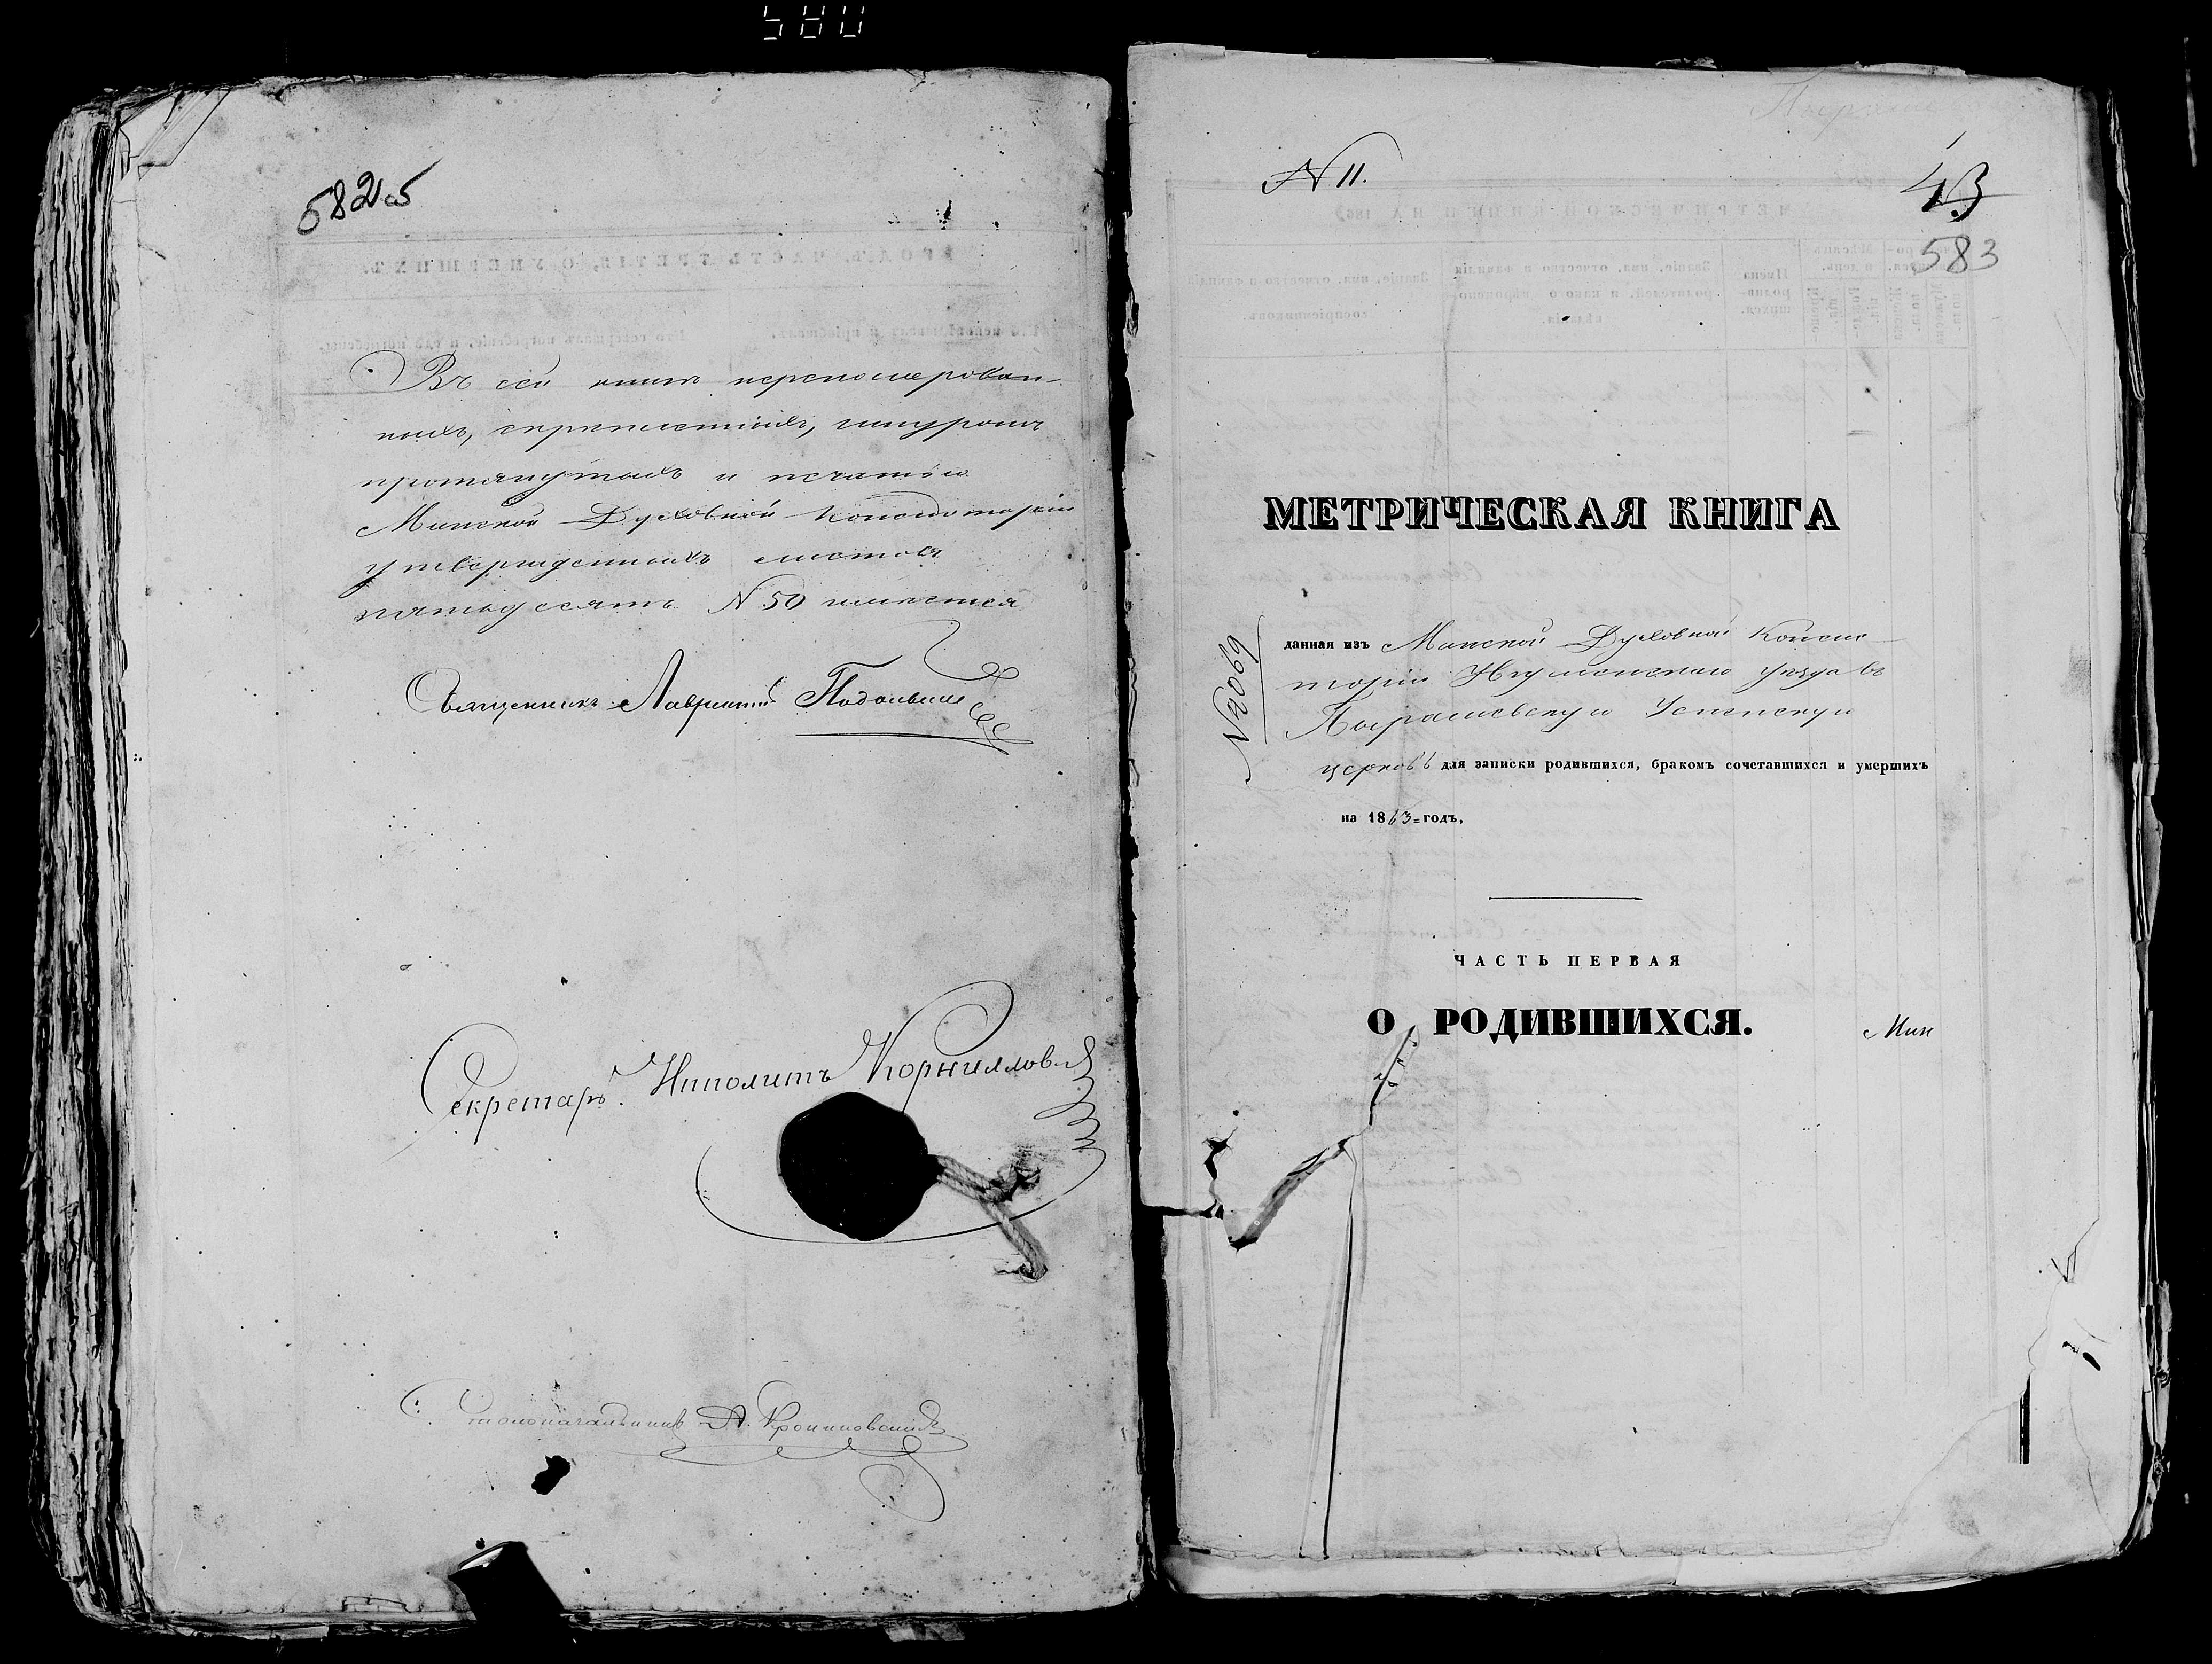 580
582об
Въ сей книгѣ перенумерован-
ныхъ, скрѣпленныхъ, шнуромъ
протянутыхъ и печатью
Минской Духовной Консисторіи
утвержденныхъ листовъ
пятьдесятъ N 50 имѣется
Священникъ Лаврентій
Секретарь Ипполитъ Корниллов
Столоначальникъ А.
N 11.
43
583
МЕТРИЧЕСКАЯ КНИГА
N 2069
данная изъ Минской Духовной Консис-
торіи Игуменскаго уѣзда въ
Пырашевскую Успенскую
церковь для записки родившихся, бракомъ сочетавшихся и умершихъ
на 1863 годъ.
ЧАСТЬ ПЕРВАЯ
О РОДИВШИХСЯ.
Мин